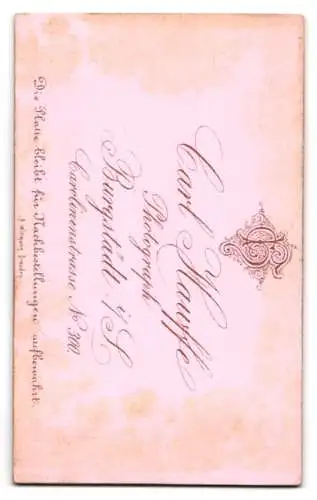 Carl Hauffe
Photograph
Burgstädt i/S.
Carolinenstrasse No 300.
Die Platte bleibt für Nachbestellungen aufbewahrt.